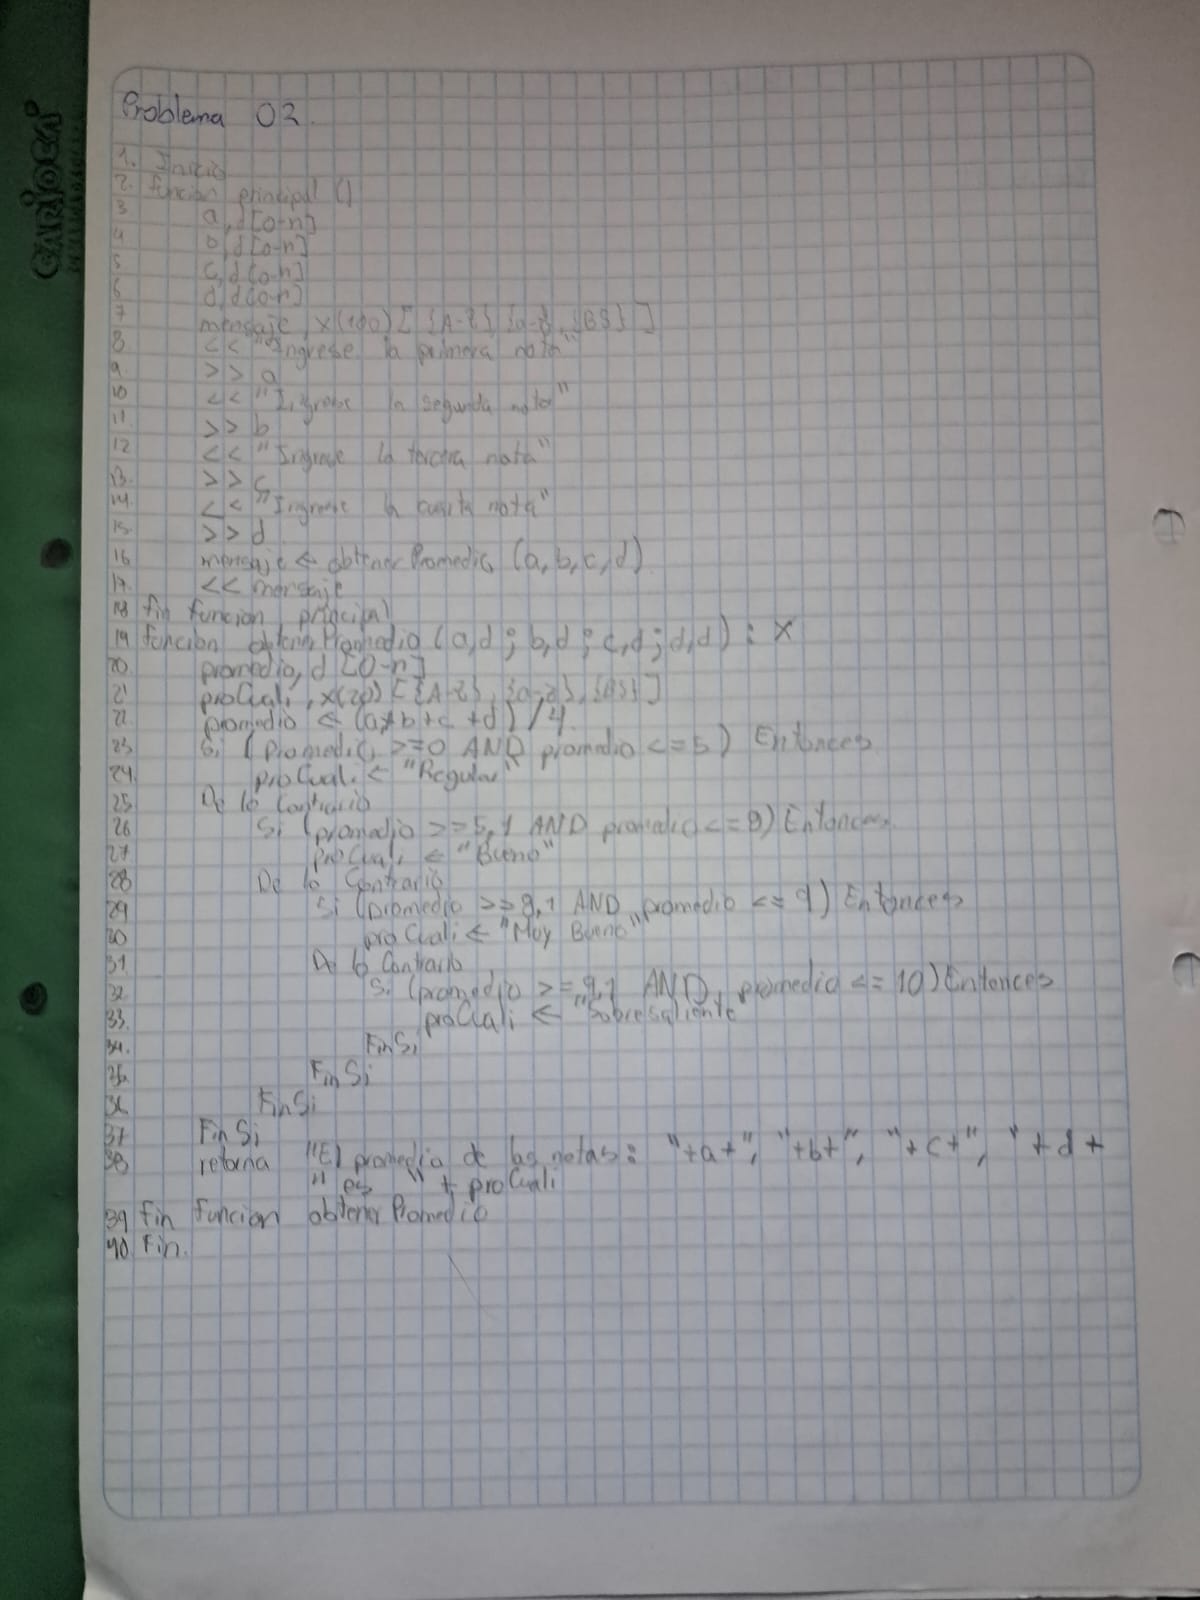 CARIOCA
Problema 02.
1. Inicio
2. funcion principal ()
3 a,d[0-n]
4 b,d[0-n]
5 c,d[0-n]
6 d,d[0-n]
7 mensaje, x(100) [ {A-Z} {a-z}, {BS} ]
8. << "Ingrese la primera nota"
9. >> a
10 << "Ingrese la segunda nota"
11. >> b
12 << "Ingrese la tercera nota"
13. >> c
14. << "Ingrese la cuarta nota"
15. >> d
16 mensaje <- obtenerPromedio (a,b,c,d)
17. << mensaje
18 fin funcion principal
19 funcion obtenerPromedio (a,d; b,d; c,d; d,d) : X
20. promedio, d [0-n]
21 proCuali, x(20) [{A-Z}, {a-z}, {BS}]
22 promedio <- (a+b+c+d) /4.
23 Si (promedio >=0 AND promedio <=5) Entonces
24. proCuali <- "Regular"
25 De lo Contrario
26 Si (promedio >=5,1 AND promedio <=8) Entonces
27 proCuali <- "Bueno"
28 De lo Contrario
29 Si (promedio >=8,1 AND promedio <= 9) Entonces
30 proCuali <- "Muy Bueno"
31. De lo Contrario
32 Si (promedio >= 9,1 AND promedio <= 10) Entonces
33. proCuali <- "Sobresaliente"
34. FinSi
35. FinSi
36 FinSi
37 FinSi
38 retorna "El promedio de las notas: "+a+", "+b+", "+c+", "+d+
" es " + proCuali
39 fin funcion obtenerPromedio
40 Fin.